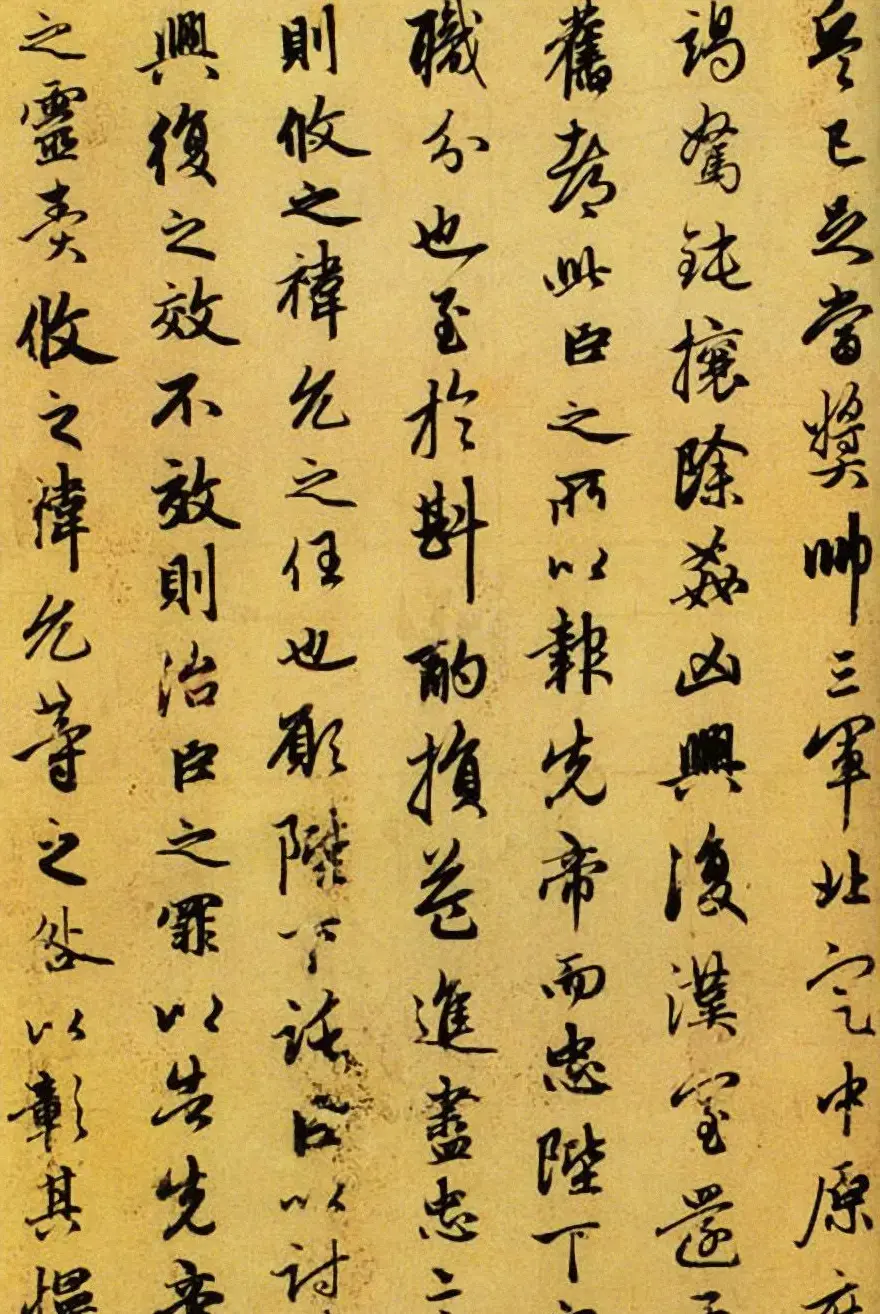 兵已足當獎帥三軍北定中原
竭駑鈍攘除姦凶興復漢室還
舊都此臣之所以報先帝而忠陛下
職分也至於斟酌損益進盡忠
則攸之禕允之任也願陛下託臣以討
興復之效不效則治臣之罪以告先帝
之靈責攸之禕允等之咎以彰其慢